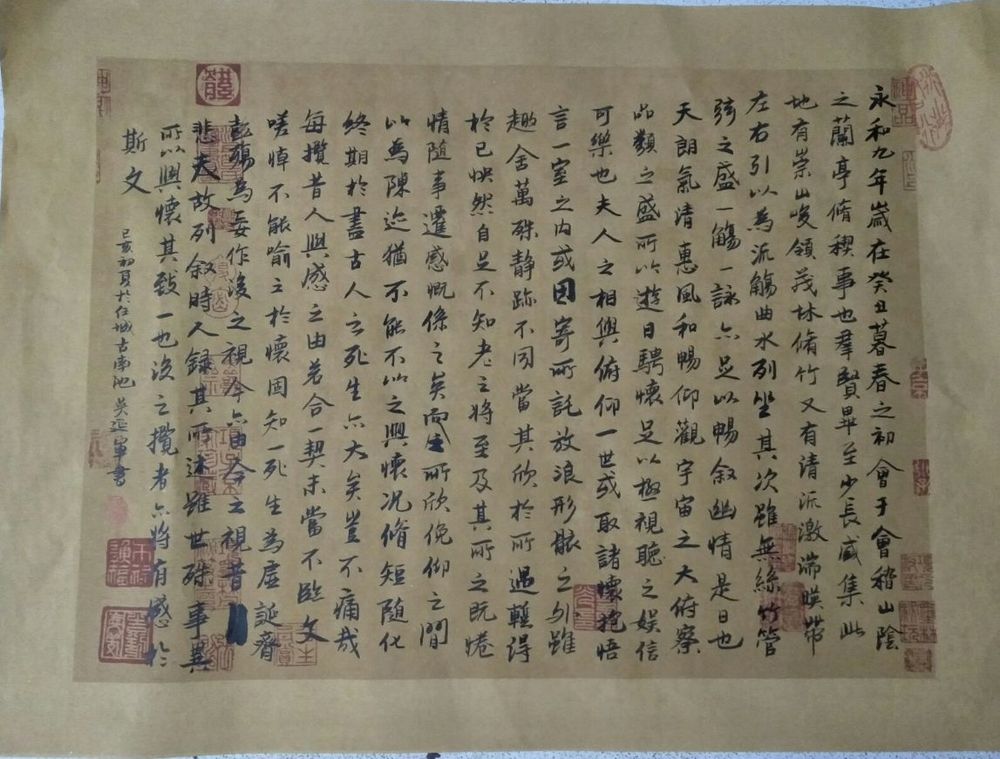 永和九年歲在癸丑暮春之初會于會稽山陰
之蘭亭脩稧事也羣賢畢至少長咸集此
地有崇山峻領茂林脩竹又有清流激湍暎帶
左右引以為流觴曲水列坐其次雖無絲竹管
弦之盛一觴一詠亦足以暢叙幽情是日也
天朗氣清惠風和暢仰觀宇宙之大俯察
品類之盛所以遊目騁懷足以極視聽之娛信
可樂也夫人之相與俯仰一世或取諸懷抱悟
言一室之内或因寄所託放浪形骸之外雖
趣舍萬殊静躁不同當其欣於所遇輒得
於己怏然自足不知老之將至及其所之既惓
情隨事遷感慨係之矣向之所欣俛仰之間
以為陳迹猶不能不以之興懷況脩短隨化
終期於盡古人云死生亦大矣豈不痛哉
每攬昔人興感之由若合一契未嘗不臨文
嗟悼不能喻之於懷固知一死生為虛誕齊
彭殤為妄作後之視今亦由今之視昔
悲夫故列叙時人録其所述雖世殊事異
所以興懷其致一也後之攬者亦將有感於
斯文
己亥初夏於任城古南池 吴延軍書